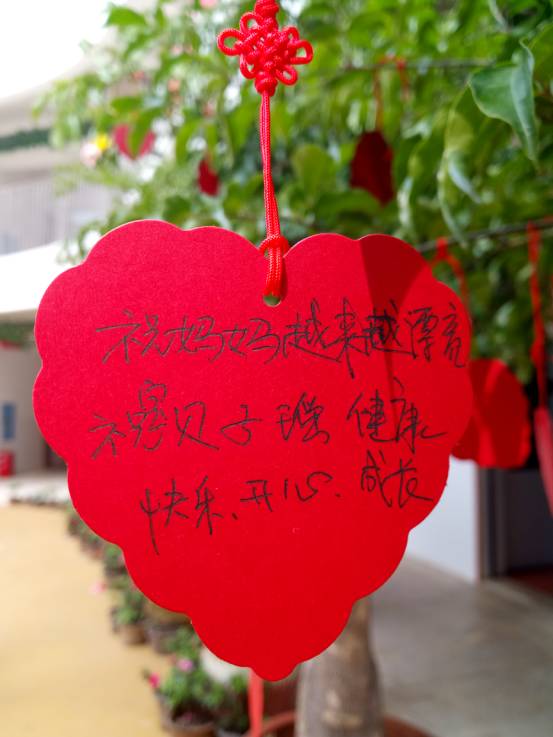 祝妈妈越来越漂亮
祝宝贝子瑶 健康
快乐、开心、成长